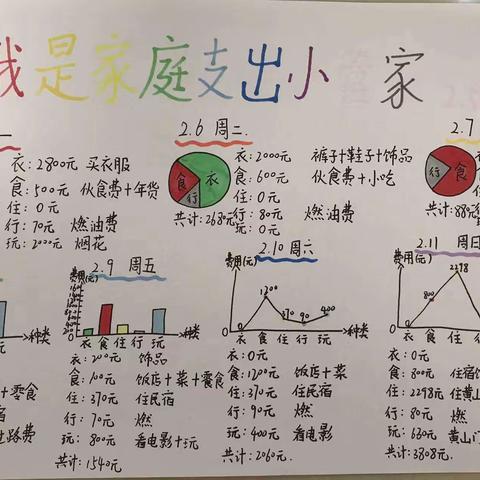 我是家庭支出小 家
2.6 周二
2.7
衣:2800元 买衣服
食:500元 伙食费+年货
住:0元
行:70元 燃油费
玩:2000元 烟花
食 衣 行
共计:2680元
衣:2000元 裤子+鞋子+饰品
食:600元 伙食费+小吃
住:0元
行:80元 燃油费
玩:0元
食 行
共计:88
2.9 周五
费用(元)
衣 食 住 行 玩 种类
衣:200元 饰品
食:100元 饭店+菜+零食
住:370元 住民宿
行:70元 燃
玩:800元 看电影+玩
共计:1540元
2.10 周六
费用(元)
0 1200 370 90 400
衣 食 住 行 玩 种类
衣:0元
食:1200元 饭店+菜
住:370元 住民宿
行:90元 燃
玩:400元 看电影
共计:2060元.
2.11 周日
费用(元)
0 800 2298
衣 食 住 行
衣:0元
食:800元 住宿
住:2298元 住黄山
行:80元 燃
玩:630元 黄山门
共计:3808元.
种类
+零食
宿
过路费